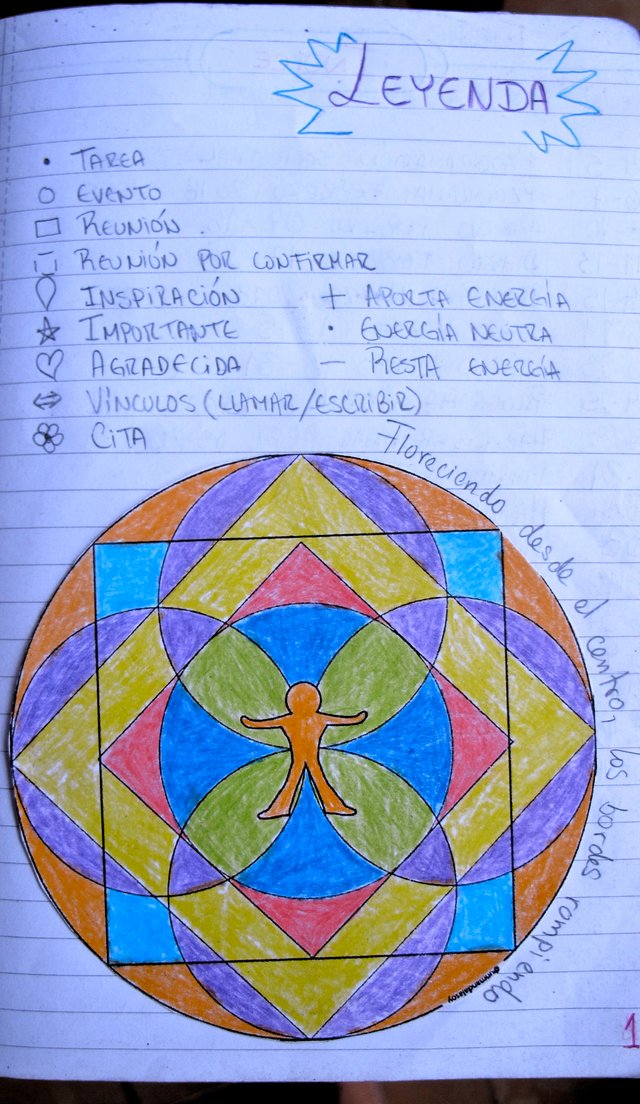 LEYENDA
• TAREA
○ EVENTO
□ REUNIÓN.
REUNIÓN POR CONFIRMAR
INSPIRACIÓN + APORTA ENERGÍA
☆ IMPORTANTE · ENERGÍA NEUTRA
♡ AGRADECIDA — RESTA ENERGÍA
⇔ VÍNCULOS (LLAMAR/ESCRIBIR)
CITA
Floreciendo desde el centro, los bordes rompiendo
1